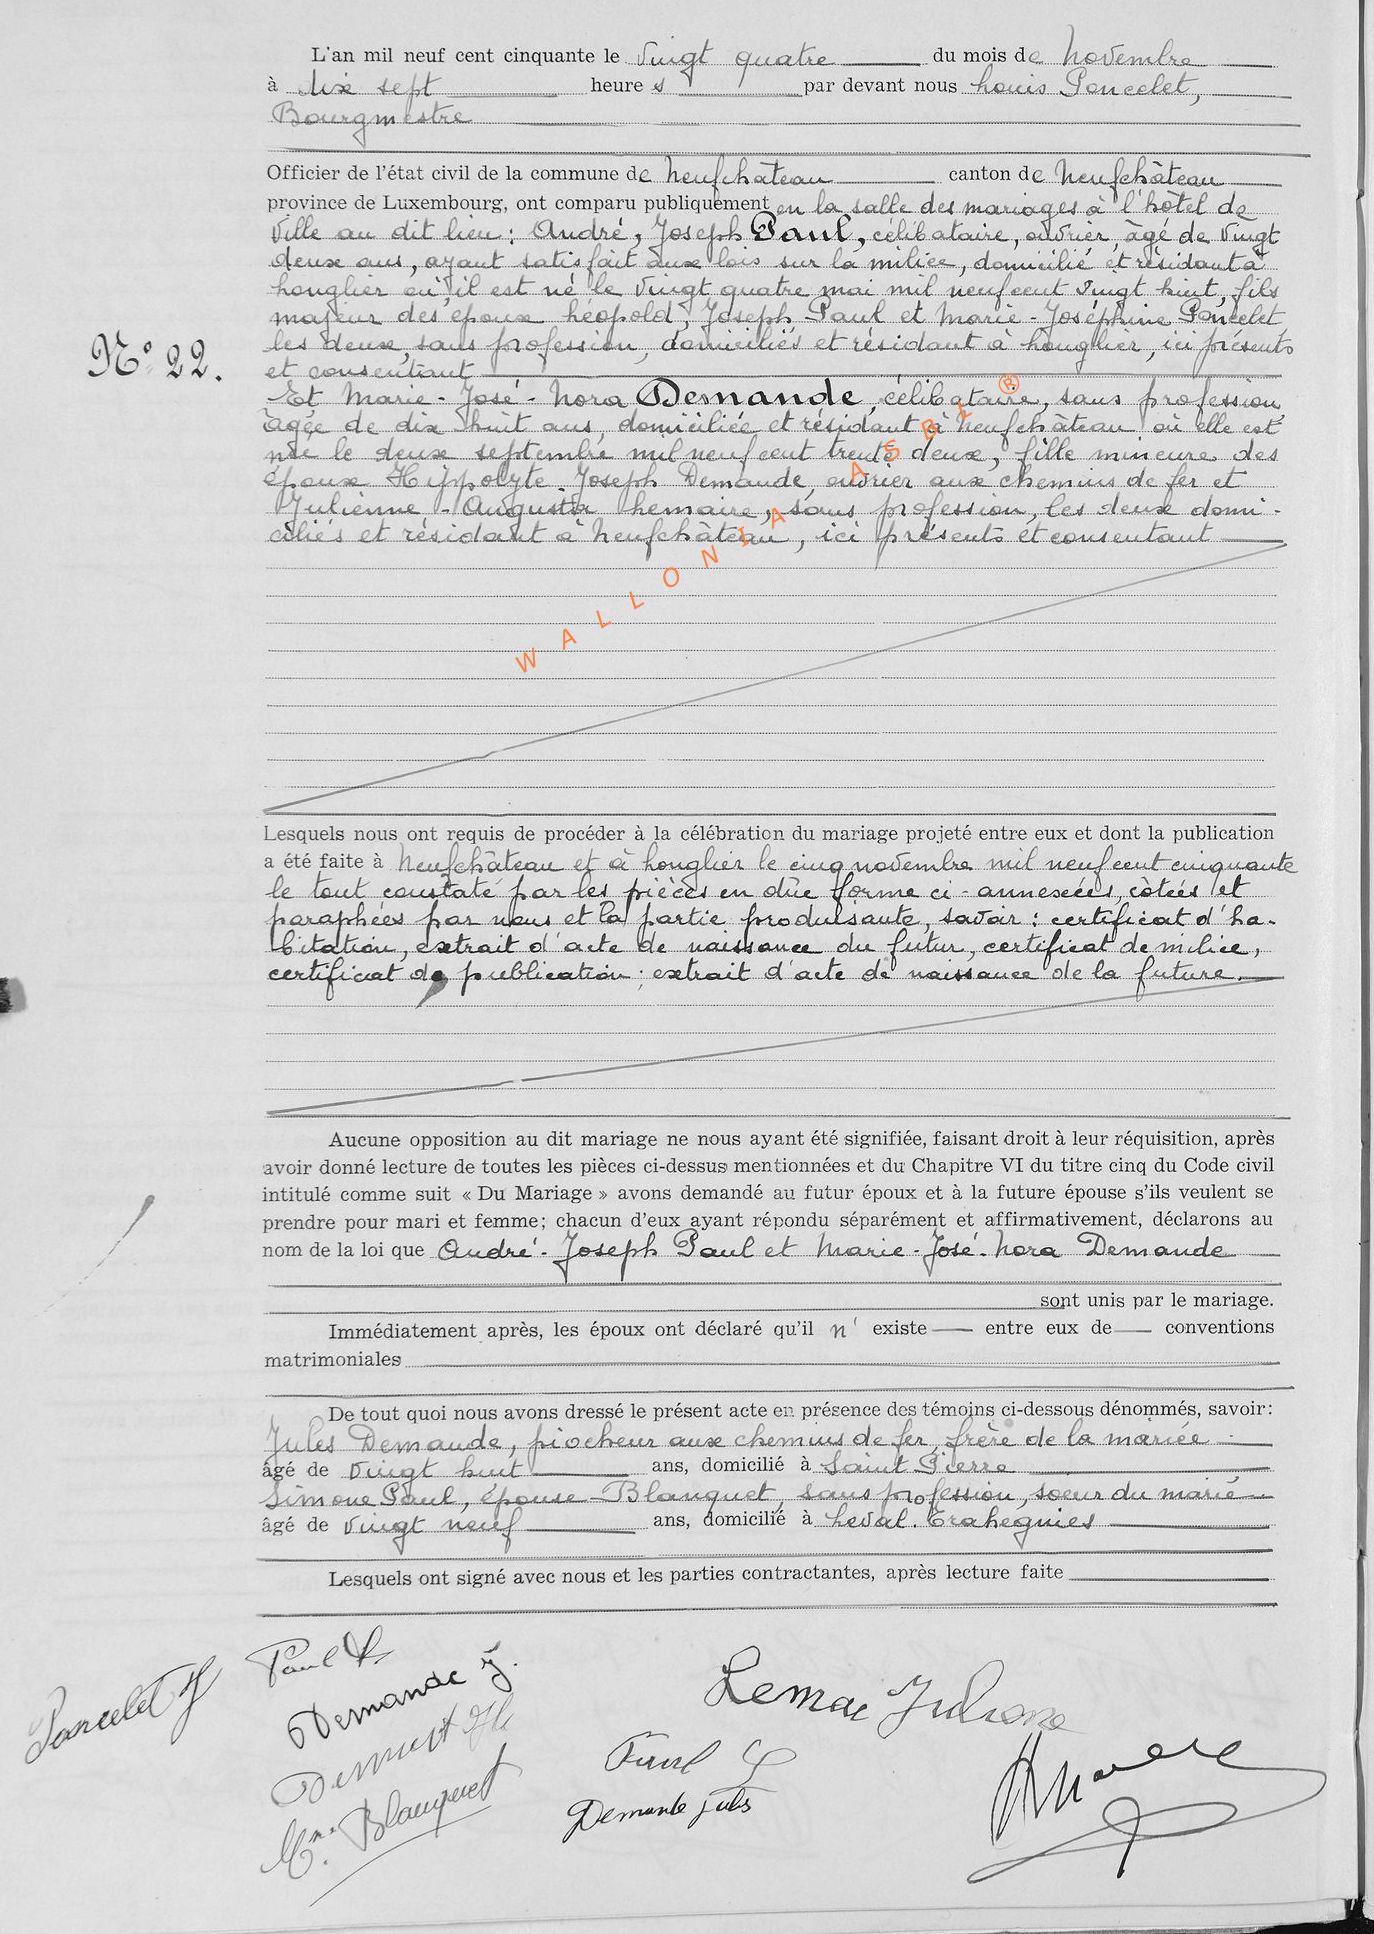 L'an mil neuf cent cinquante le vingt quatre du mois de Novembre
à dix sept heures par devant nous Louis Poncelet,
Bourgmestre
Officier de l'état civil de la commune de Neufchâteau canton de Neufchâteau
province de Luxembourg, ont comparu publiquement en la salle des mariages à l'hôtel de
ville au dit lieu : André, Joseph Paul, célibataire, ouvrier, âgé de vingt
deux ans, ayant satisfait aux lois sur la milice, domicilié et résidant à
Longlier où il est né le vingt quatre mai mil neuf cent vingt huit, fils
majeur des époux Léopold, Joseph Paul et Marie-Joséphine Poncelet,
les deux, sans profession, domiciliés et résidant à Longlier, ici présents
et consentant
N° 22.
Et Marie-José-Nora Demande, célibataire, sans profession,
âgée de dix huit ans, domiciliée et résidant à Neufchâteau où elle est
née le deux septembre mil neuf cent trente deux, fille mineure des
époux Hippolyte-Joseph Demande, ouvrier aux chemins de fer et
Julienne-Augusta Lemaire, sans profession, les deux domi-
ciliés et résidant à Neufchâteau, ici présents et consentant
WALLONIA ASBL ®
Lesquels nous ont requis de procéder à la célébration du mariage projeté entre eux et dont la publication
a été faite à Neufchâteau et à Longlier le cinq novembre mil neuf cent cinquante
le tout constaté par les pièces en dûe forme ci-annexées, côtées et
paraphées par nous et la partie produisante, savoir : certificat d'ha-
bitation, extrait d'acte de naissance du futur, certificat de milice,
certificat de publication ; extrait d'acte de naissance de la future.
Aucune opposition au dit mariage ne nous ayant été signifiée, faisant droit à leur réquisition, après
avoir donné lecture de toutes les pièces ci-dessus mentionnées et du Chapitre VI du titre cinq du Code civil
intitulé comme suit « Du Mariage » avons demandé au futur époux et à la future épouse s'ils veulent se
prendre pour mari et femme; chacun d'eux ayant répondu séparément et affirmativement, déclarons au
nom de la loi que André-Joseph Paul et Marie-José-Nora Demande
sont unis par le mariage.
Immédiatement après, les époux ont déclaré qu'il n' existe entre eux de conventions
matrimoniales
De tout quoi nous avons dressé le présent acte en présence des témoins ci-dessous dénommés, savoir:
Jules Demande, piocheur aux chemins de fer, frère de la mariée
âgé de vingt huit ans, domicilié à Saint Pierre
Simone Paul, épouse Blanquet, sans profession, soeur du marié
âgé de vingt neuf ans, domicilié à Leval-Trahegnies
Lesquels ont signé avec nous et les parties contractantes, après lecture faite
Poncelet J
Paul
Demande J.
Lemai Juliene
Paul
Blanquet
Demande Jules